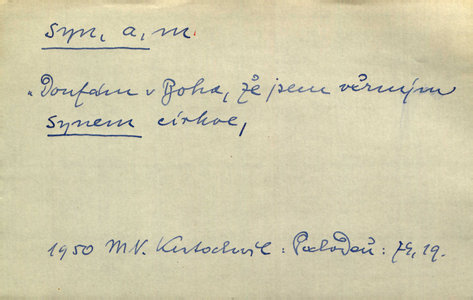 syn, a, m.
„Doufám v Boha, že jsem věrným
synem církve,
1950 M.V. Kratochvil: : 74, 19.